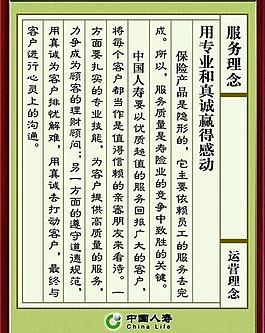 服务理念
运营理念
用专业和真诚赢得感动
保险产品是隐形的，它主要依赖员工的服务去完
成。所以，服务质量是寿险业的竞争中致胜的关键。
中国人寿要以优质超值的服务回报广大的客户，
将每个客户都当作是值得信赖的亲密朋友来看待。一
方面要扎实的专业技能，为客户提供高质量的服务，
力争成为顾客的理财顾问；另一方面的遵守道德规范，
用真诚为客户排忧解难，用真诚去打动客户，最终与
客户进行心灵上的沟通。
中国人寿
China Life